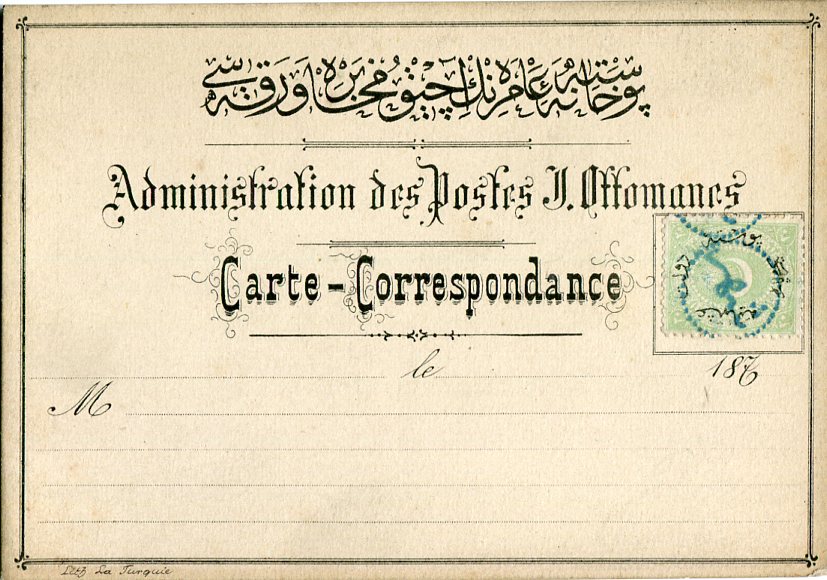 پوستهٔ خانهٔ عامرەنك آچیق مخابره ورقه‌سی
Administration des Postes I. Ottomanes
Carte-Correspondance
le 187
M
Lith La Turquie